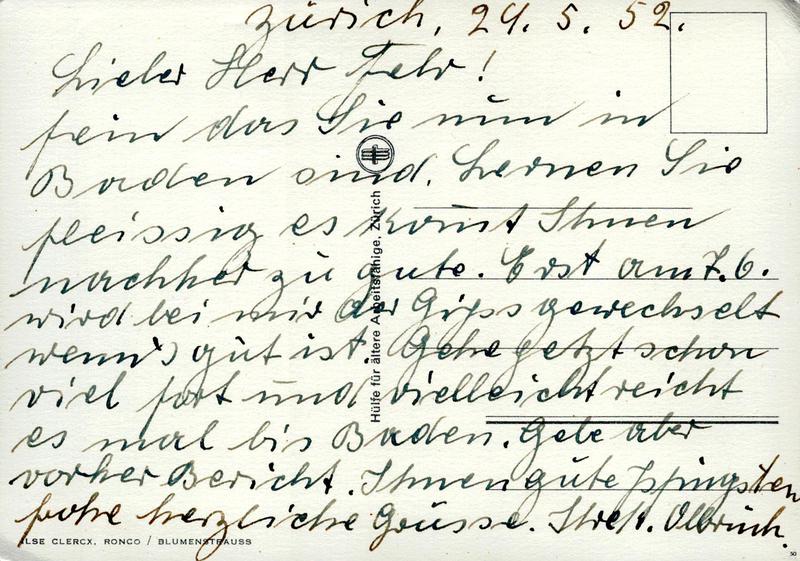 Zürich, 29. 5. 52.
Lieber Herr Fehr!
fein das Sie nun in
Baden sind. Lernen Sie
fleissig es komt Ihnen
nachher zu gute. Erst am 7.6.
wird bei mir der Gips gewechselt
wenn's gut ist. Gehe jetzt schon
viel fort und vielleicht reicht
es mal bis Baden. Gebe aber
vorher Bericht. Ihnen gute Pfingsten
frohe herzliche Grüsse. Olbrich.
Hülfe für ältere Arbeitsfähige, Zürich
ILSE CLERCX, RONCO / BLUMENSTRAUSS
50